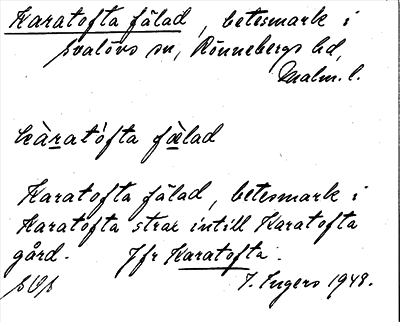 Karatofta fälad, betesmark i
Svalövs sn, Rönnebergs hd,
Malm. l.
kàratofta fälad
Karatofta fälad, betesmark i
Karatofta strax intill Karatofta
gård. Jfr Karatofta.
I. Ingers 1949.